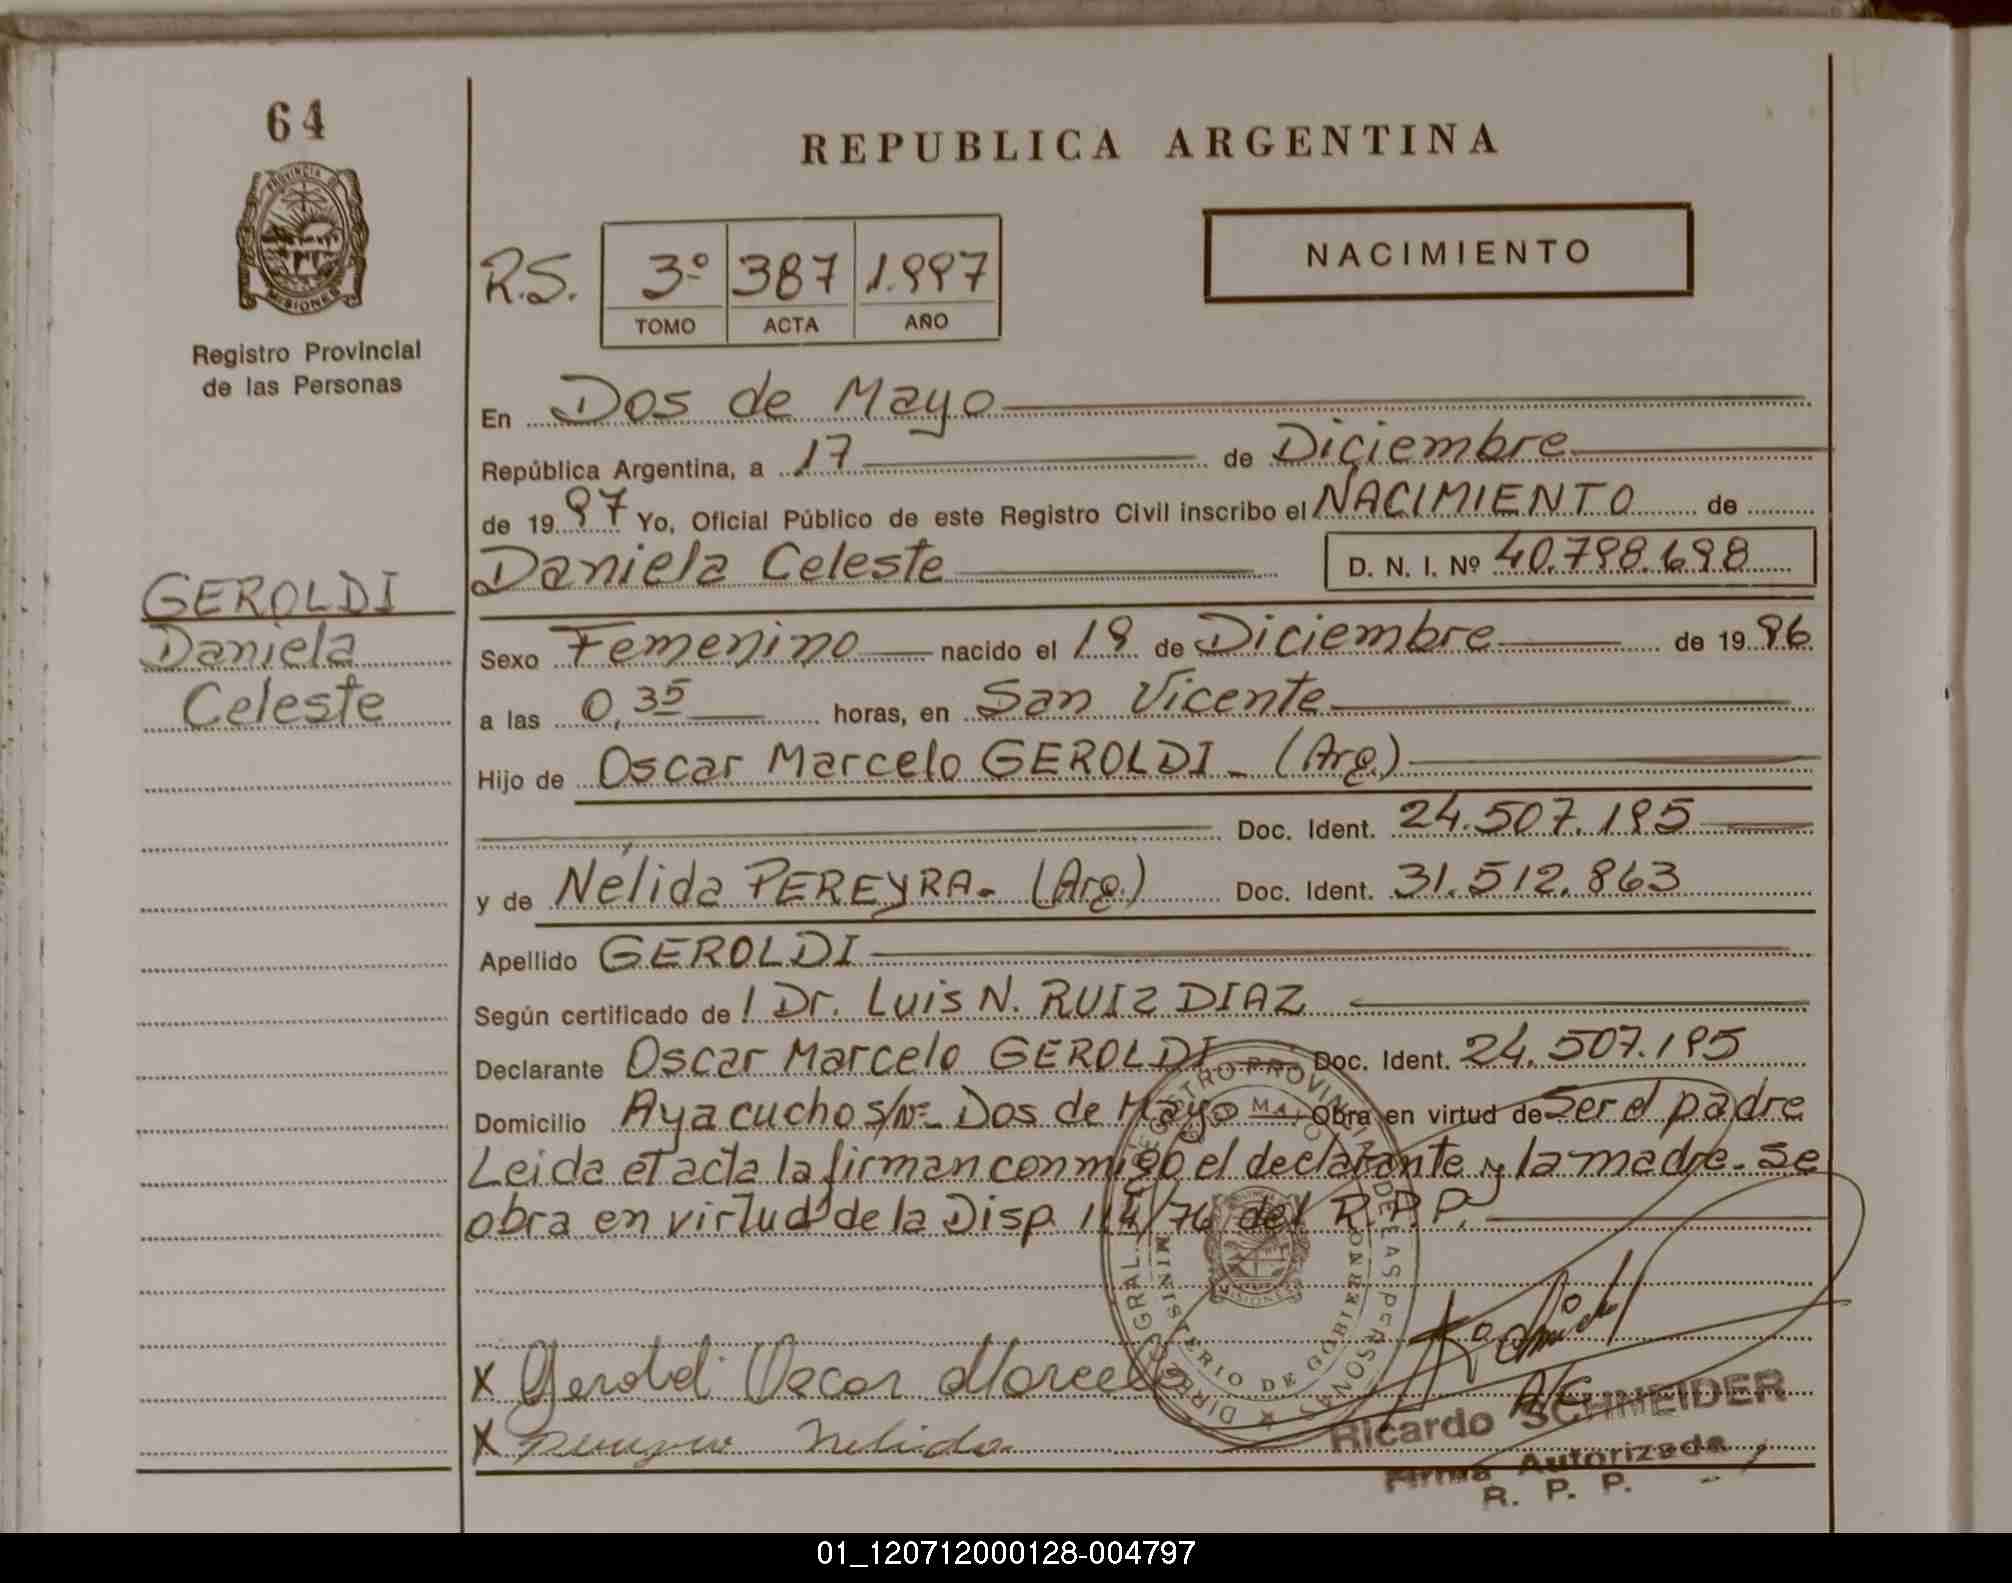 64
PROVINCIA DE
MISIONES
Registro Provincial
de las Personas
REPUBLICA ARGENTINA
NACIMIENTO
R.S. 3º 387 1.997
TOMO ACTA AÑO
En Dos de Mayo
República Argentina, a 17 de Diciembre
de 1997 Yo, Oficial Público de este Registro Civil inscribo el NACIMIENTO de
Daniela Celeste D. N. I. Nº 40.798.698
GEROLDI
Daniela
Celeste
Sexo Femenino nacido el 19 de Diciembre de 1996
a las 0,35 horas, en San Vicente
Hijo de Oscar Marcelo GEROLDI - (Arg.)
Doc. Ident. 24.507.195
y de Nélida PEREYRA - (Arg.) Doc. Ident. 31.512.863
Apellido GEROLDI
Según certificado de l Dr. Luis N. RUIZ DIAZ
Declarante Oscar Marcelo GEROLDI Doc. Ident. 24.507.195
Domicilio Ayacucho s/Nº Dos de Mayo Obra en virtud de Ser el padre
Leida el acta la firman conmigo el declarante y la madre. Se
obra en virtud de la Disp. 114/76 del R.P.P.
X Geroldi Oscar Marcelo
X Pereyra Nelida
A/C
Ricardo SCHNEIDER
Firma Autorizada
R. P. P.
01_120712000128-004797